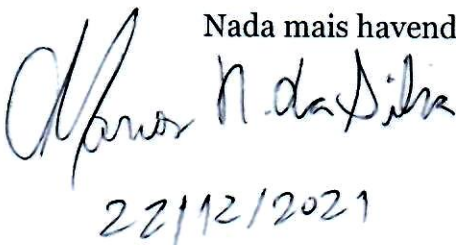 Nada mais havend
Marcos N. da Silva
22/12/2021